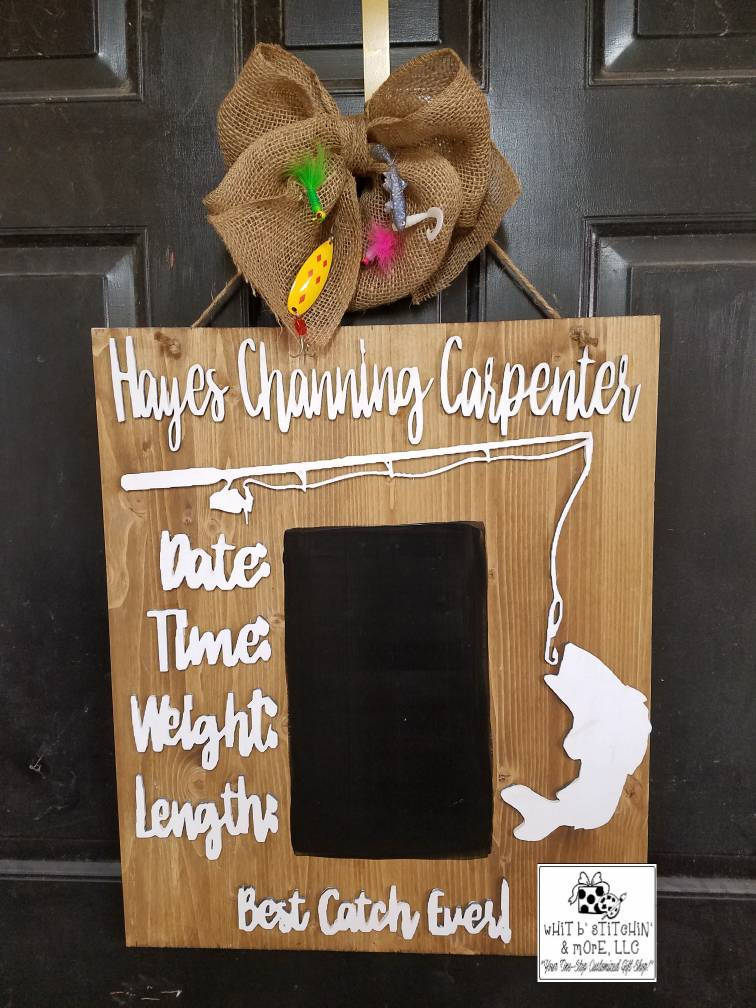 Hayes Channing Carpenter
Date:
Time:
Weight:
Length:
Best Catch Ever!
WHIT B' STITCHIN'
& MORE, LLC
"Your One-Stop Customized Gift Shop!"